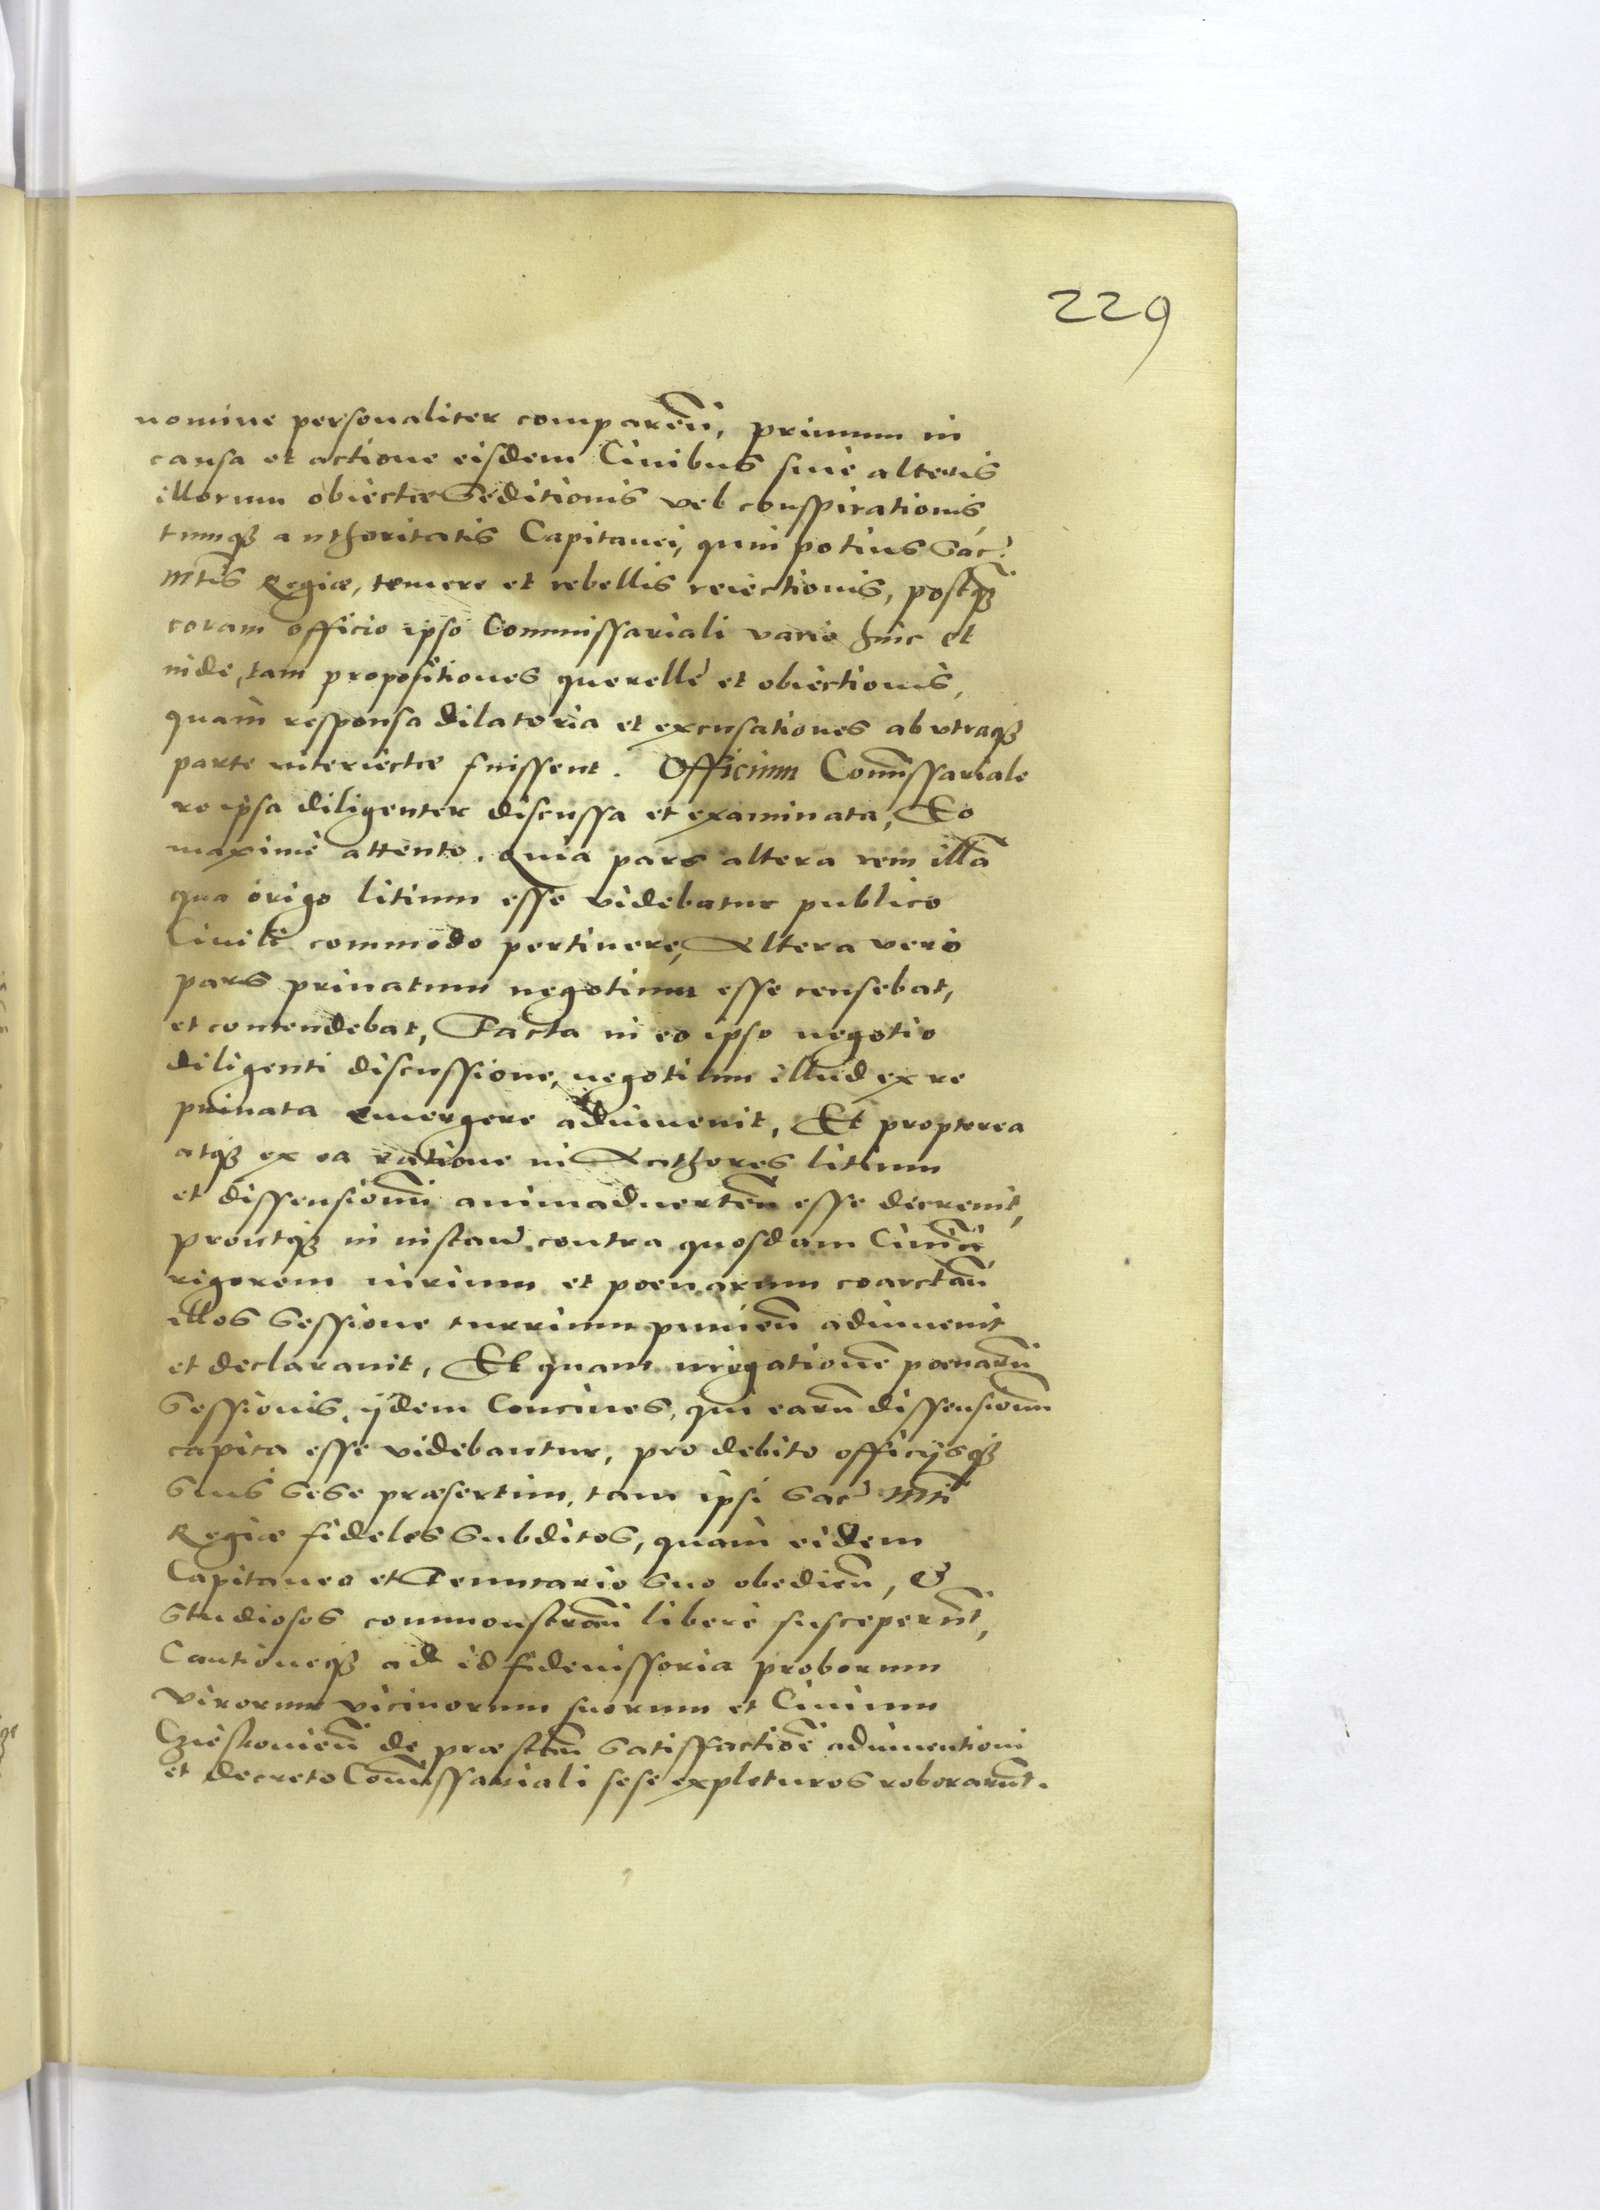 229
nomine personaliter comparen̄, primum in
causa et actione eisdem Ciuibus siue alteris
illorum obiectæ Seditionis vel conspirationis,
tumq₃ authoritatis Capitanei, quin potius Sac:
Mtis Regiæ, temere et rebellis reiectionis, postq̄₃
coram officio ipso Commissariali varie hinc et
inde, tam propositiones querelle et obiectionis,
quàm responsa dilatoria et excusationes ab vtraq₃
parte interiectæ fuissent. Officium Com̄issariale
re ipsa diligenter discussa et examinata, Eo
maximè attento. Quia pars altera rem illā
qua origo litium esse videbatur publico
Ciuili commodo pertinere, Altera verò
pars priuatum negotium esse censebat,
et contendebat, Facta in eo ipso negotio
diligenti discussione, negotium illud ex re
priuata emergere adinuenit, Et propterea
atq₃ ex ea ratione in Authores litium
et dissensionū animaduerten̄ esse decreuit,
proutq₃ in instan̄ contra quosdam
rigorem iurium et poenarum coarctan̄
illos Sessione turrium punien̄ adinuenit
et declarauit, Et quam irrogationē poenarū
Sessionis, ijdem Conciues, qui earū dissensionū
capita esse videbantur, pro debito officijsq₃
Suis Sese præsertim, tam ipsi Sac: Mti
Regiæ fideles Subditos, quàm eidem
Capitaneo et Tenutario Suo obedien̄, &
Studiosos commonstran̄ liberè susceperūt,
Cautioneq₃ ad id fideiussoria proborum
virorum vicinorum suorum et Ciuium
de præstan̄ Satisfactiōe adinuentioni
et decreto Com̄issariali sese expleturos roborarūt.